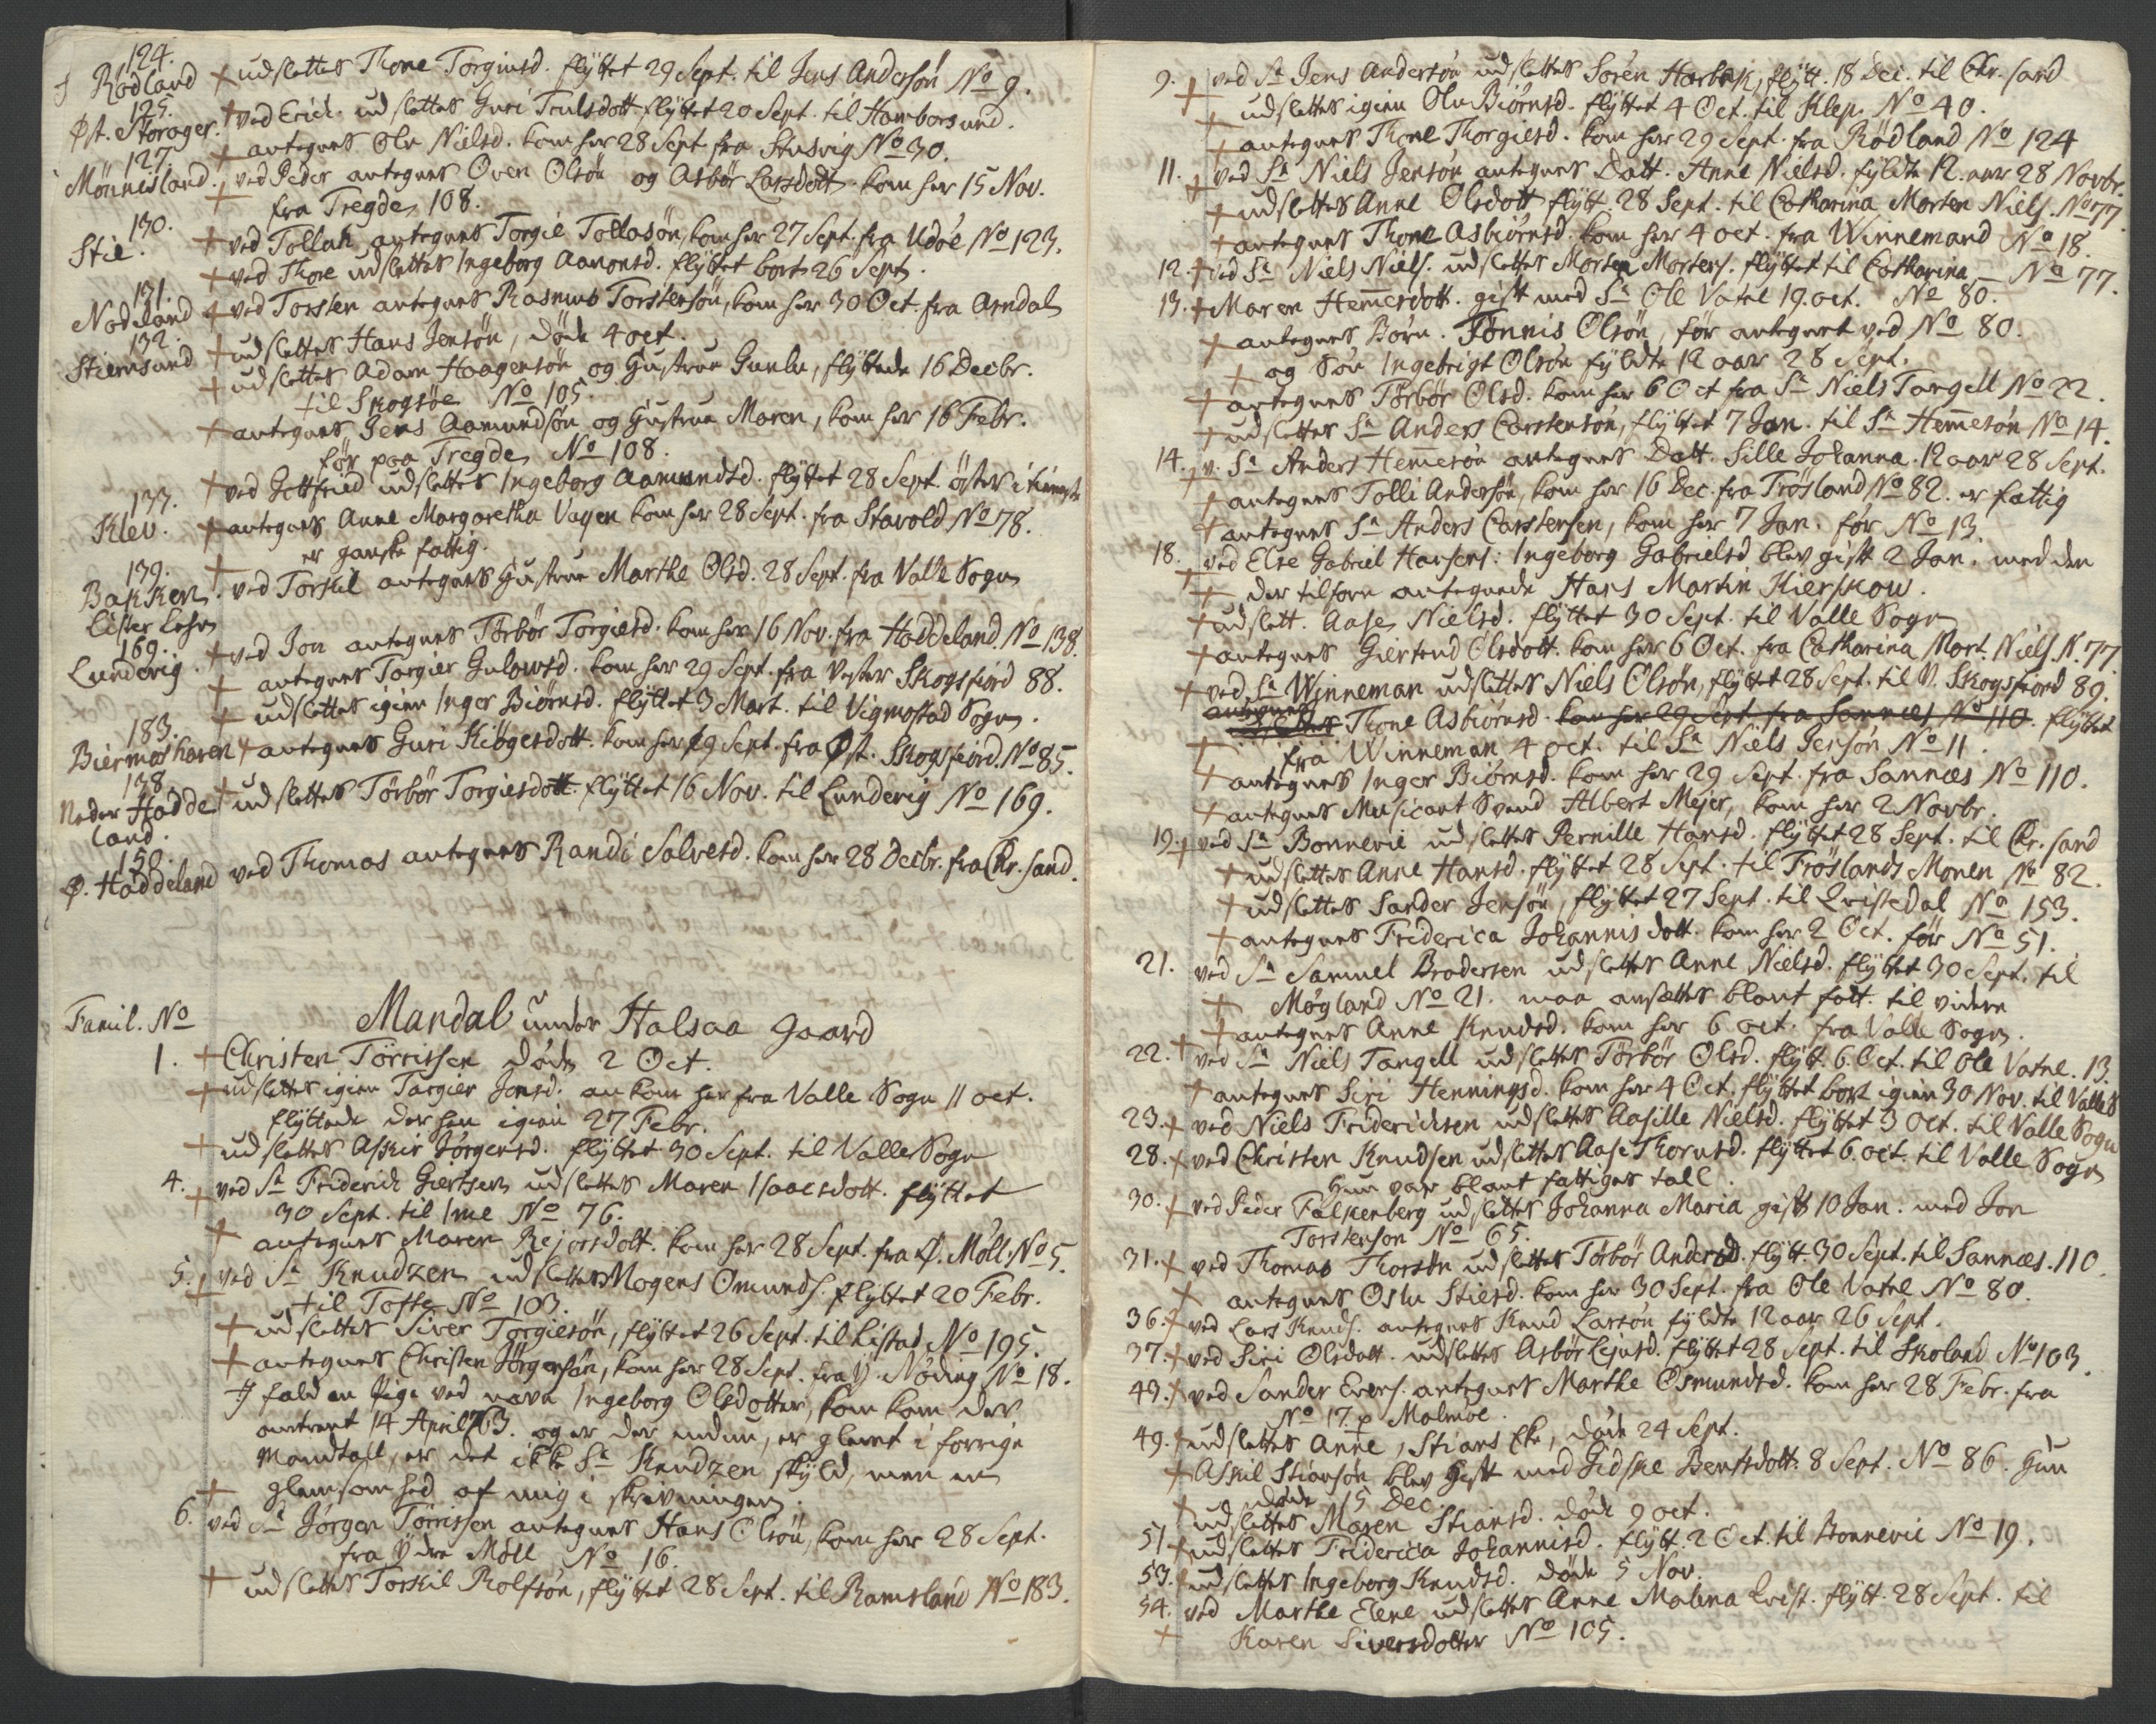 124.
Rödland + udslettes Thone Torgiusd. flyttet 29 Sept. til Jens Andersön No 9.
125.
Øst. Storager. + ved Erick. udslettes Guri Trulsdott. flyttet 20 Sept. til Hamborsund.
+ antegnes Olu Nielsd. kom her 28 Sept fra Stusvig No 30.
127.
Mönnisland. + ved Peder antegnes Oven Olsön og Asbör Larsdott. kom her 15 Nov.
fra Tregde 108.
130.
Stie. + ved Tollak antegnes Torgie Tollasön, kom her 27 Sept. fra Udöe No 123.
+ ved Thore udslettes Ingeborg Aanonsd. flyttet bort 26 Sept.
131.
Nodeland + ved Torsten antegnes Rasmus Torstensön, kom her 30 Oct. fra Arndal
132.
Stiernsund + udslettes Hans Jensön, döde 4 oct.
+ udslettes Adam Haagensön og Hustrue Gunlu, flyttede 16 Decbr.
til Skogsöe No 105.
+ antegnes Jens Aamundsön og Hustrue Maren, kom her 16 Febr.
för paa Tregde No 108.
133.
Klev. + ved Gottfried udslettes Ingeborg Aamundsd. flyttet 28 Sept. öster i tieneste
+ antegnes Anne Margaretha Vagen kom her 28 Sept. fra Stavold No 78.
er ganske fattig.
139.
Bakken. + ved Torkil antegnes Hustrue Marthe Olsd. 28 Sept. fra Valle Sogn
Lister Lehn
169.
Lundevig. + ved Jon antegnes Törbör Torgiesd. kom her 16 Nov. fra Haddeland No 138.
+ antegnes Torgier Gulowsd. kom her 29 Sept. fra Vester Skogsfiord 88.
+ udslettes igien Inger Biörnsd. flyttet 3 Mart. til Vigmostad Sogn.
183.
Biermoshaven + antegnes Guri Kiögesdott. kom her 29 Sept. fra Øst. Skogsfiord. No 85.
138
Neder Hadde + udslettes Törbör Torgiesdott. flyttet 16 Nov. til Lundevig No 169.
land.
150.
Ø. Haddeland ved Thomas antegnes Randi Salvesd. kom her 28 Decbr. fra Chr.sand.
Famil. No Mandal under Halsaa Gaard
1. + Christen Törrissen döde 2 Oct.
+ udslettes igien Targier Jonsd. ankom her fra Valle Sogn 11 oct.
flyttede derhen igien 27 Febr.
+ udslettes Askier Jörgensd. flyttet 30 Sept. til Valle Sogn
4. + ved Sr Friderich Giertsen udslettes Maren Isaacsdott. flyttet
30 Sept. til Ime No 76.
+ antegnes Maren Rejersdott. kom her 28 Sept. fra Ø. Möll. No 5.
5. + ved Sr Knudzen udslettes Mogens Omunds. flyttet 20 Febr.
til Tofte No 103.
+ udslettes Siver Torgiesön, flyttet 26 Sept. til Listad No 195.
+ antegnes Christen Jörgensön, kom her 28 Sept. fra Y. Nöding No 18.
I fald en Pige ved navn Ingeborg Olsdotter, som kom der
omtrent 14 April 763. og er der endnu, er glemt i forrige
Mandtall, er det ikke Sr Knudzen skyld, men en
+ glemsomhed af mig i skrivningen.
6. ved Sr Jörgen Törrissen antegnes Hans Olsön, kom her 28 Sept.
fra Ydre Möll No 16.
+ udslettes Torkil Rolfsön, flyttet 28 Sept. til Ramsland No 183.
9. + ved Sr Jens Andersön udslettes Sören Harbak, flytt. 18 Dec. til Chr.sand
+ udslettes igien Olu Biörnsd. flyttet 4 Oct. til Klep. No 40.
+ antegnes Thone Thorgiesd. kom her 29 Sept. fra Rödland No 124
11. + ved Sr Niels Jensön antegnes Datt. Anne Nielsd. fyldte 12. aar 28 Novbr.
+ udslettes Anne Olsdott flytt. 28 Sept. til Catharina Morten Niels. No 77.
+ antegnes Thone Asbiörnsd. kom her 4 oct. fra Winnemand No 18.
12. + ved Sr Niels Niels. udslettes Morten Mortens. flyttet til Catharina — No 77.
13. + Maren Hem̅esdott. gift med Sr Ole Vatne 19. oct. No 80.
+ antegnes Börn. Tönnis Olsön, för antegnet ved No 80.
+ og Sön Ingebrigt Olsön fyldte 12 aar 28 Sept.
+ antegnes Törbör Olsd. kom her 6 Oct fra Sr Niels Tangell No 22.
+ udslettes Sr Anders Carstensön, flyttet 7 Jan. til Sr Hem̅esön No 14.
14. + v. Sr Anders Hem̅esön antegnes Datt. Sille Johanna. 12 aar 28 Sept.
+ antegnes Tolli Andersön, kom her 16 Dec. fra Trösland No 82. er fattig
+ antegnes Sr Anders Carstensen, kom her 7 Jan. för No 13.
18. + ved Else Gabriel Hansens: Ingeborg Gabrielsd blev gift 2 Jan. med den
+ der tilforn antegnede Hans Martin Kierskow.
+ udslett. Aase Nielsd. flyttet 30 Sept. til Valle Sogn
+ antegnes Giertrud Olsdott. kom her 6 Oct. fra Catharina Mort. Niels. N. 77
+ ved Sr Winneman udslettes Niels Olsön, flyttet 28 Sept. til V. Skogsfiord 89.
antegnes
Thone Asbiörnsd. kom her 29 Sept. fra Sannæs No 110. flyttet
+ fra Winneman 4 oct. til Sr Niels Jensön No 11.
+ antegnes Inger Biörnsd. kom her 29 Sept. fra Sannæs No 110.
+ antegnes Musicant Svend Albert Mejer, kom her 2 Novbr.
19. + ved Sr Bonnevie udslettes Pernille Hansd. flyttet 28 Sept. til Chr.sand
+ udslettes Anne Hansd. flyttet 28 Sept. til Tröslands Monen No 82.
+ udslettes Sander Jensön, flyttet 27 Sept. til Qvistedal No 153.
+ antegnes Friderica Johannisdott. kom her 2 Oct. för No 51.
21. ved Sr Samuel Brodersen udslettes Anne Nielsd. flyttet 30 Sept. til
+ Mögland No 21. maa ansættes blant fatt. til videre
+ antegnes Anne Knudsd. kom her 6 oct. fra Valle Sogn.
22. + ved Sr Niels Tangell udslettes Törbör Olsd. flytt. 6. Oct. til Ole Vatne. 13.
+ antegnes Siri Henningsd. kom her 4 Oct. flyttet bort igien 30 Nov. til Valle S
23. + ved Niels Friderichsen udslettes Aasille Nielsd. flyttet 3 Oct. til Valle Sogn
28. + ved Christen Knudsen udslettes Aase Thorusd. flyttet 6. oct. til Valle Sogn
hun var blant fattiges tall.
30. + ved Peder Falkenberg udslettes Johanna Maria gift 10 Jan. med Jon
Torstenson No 65.
31. + ved Thomas Thorsön udslettes Törbör Andersd. flytt. 30 Sept. til Sannæs. 110.
+ antegnes Oslu Stiesd. kom her 30 Sept. fra Ole Vatne No 80.
36. + ved Lars Knuds. antegnes Knud Larsön fyldte 12 aar 26 Sept.
37. + ved Siri Olsdatt. udslettes Asbör Lejusd. flyttet 28 Sept. til Skoland No 103.
49. + ved Sander Evens. antegnes Marthe Osmundsd. kom her 28 Febr. fra
No 17. p Malmöe.
49. + udslettes Anne, Stians Eke, döde 24 Sept.
+ Askil Stiansön blev gift med Gidske Berntsdott. 8 Sept. No 86. hun
döde 15 Dec.
+ udslettes Maren Stiansd. döde 9 oct.
51. + udslettes Friderica Johannisd. flytt. 2 Oct. til Bonnevie No 19.
53. + udslettes Ingeborg Knudsd. döde 5 Nov.
54. ved Marthe Elene udslettes Anne Malena Qvist. flytt. 28 Sept. til
+ Karen Siversdotter No 105.